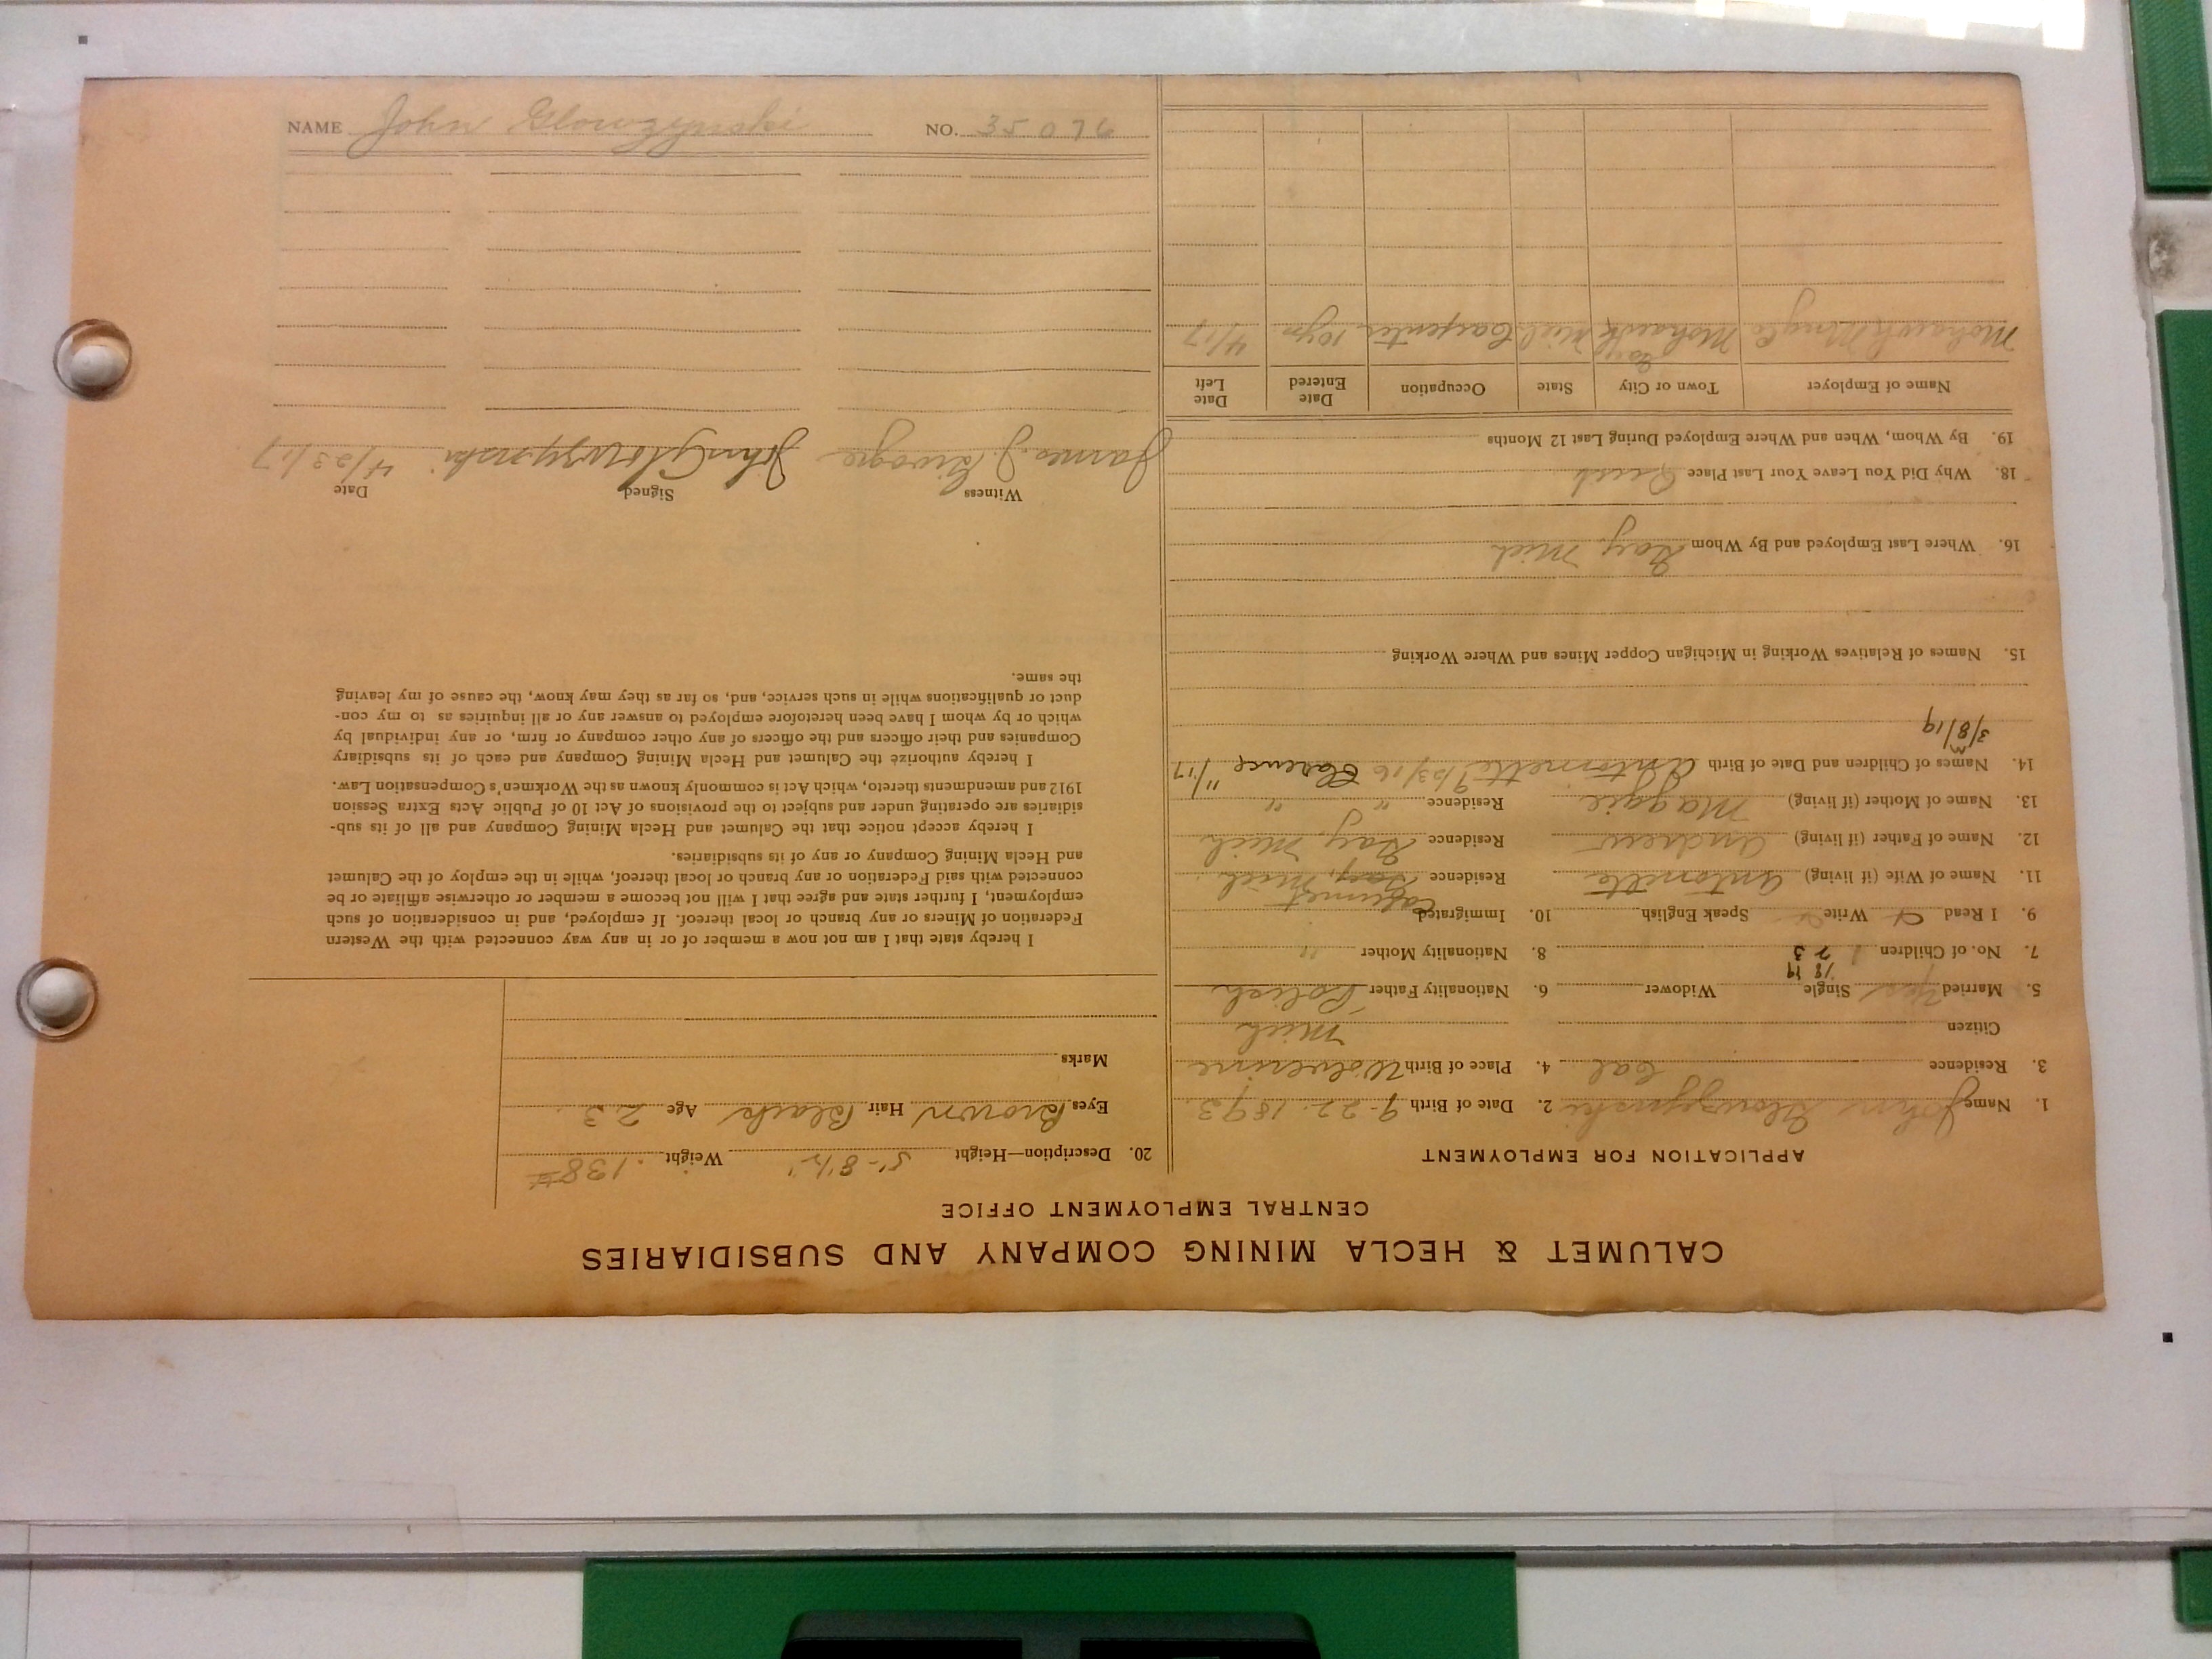 CALUMET & HECLA MINING COMPANY AND SUBSIDIARIES
CENTRAL EMPLOYMENT OFFICE
APPLICATION FOR EMPLOYMENT
1. Name John Glowzynski 2. Date of Birth 9-22-1893.
3. Residence Cal 4. Place of Birth Wolverine
Citizen Mich
5. Married Yes Single Widower 6. Nationality Father Polish
18 19
7. No. of Children 1 2 3 8. Nationality Mother "
9. I Read Write Speak English 10. Immigrated
Calumet
11. Name of Wife (if living) Antonette Residence Gay, Mich.
12. Name of Father (if living) Andrew Residence Gay, Mich
13. Name of Mother (if living) Maggie Residence " "
14. Names of Children and Date of Birth Antonnette 9/23/16 Clarence 11/17
M
3/8/19
15. Names of Relatives Working in Michigan Copper Mines and Where Working
16. Where Last Employed and By Whom Gay, Mich
18. Why Did You Leave Your Last Place Quit
19. By Whom, When and Where Employed During Last 12 Months
Name of Employer Town or City State Occupation Date Entered Date Left
Gay
Mohawk Mng Co Mohawk Mich Carpenter 10 yrs 4/17
20. Description—Height 5'-8½" Weight 138#
Eyes Brown Hair Black Age 23.
Marks
I hereby state that I am not now a member of or in any way connected with the Western
Federation of Miners or any branch or local thereof. If employed, and in consideration of such
employment, I further state and agree that I will not become a member or otherwise affiliate or be
connected with said Federation or any branch or local thereof, while in the employ of the Calumet
and Hecla Mining Company or any of its subsidiaries.
I hereby accept notice that the Calumet and Hecla Mining Company and all of its sub-
sidiaries are operating under and subject to the provisions of Act 10 of Public Acts Extra Session
1912 and amendments thereto, which Act is commonly known as the Workmen's Compensation Law.
I hereby authorize the Calumet and Hecla Mining Company and each of its subsidiary
Companies and their officers and the officers of any other company or firm, or any individual by
which or by whom I have been heretofore employed to answer any or all inquiries as to my con-
duct or qualifications while in such service, and, so far as they may know, the cause of my leaving
the same.
Witness Signed Date
James J. John Glowzynski 4/23/17
NAME John Glowzynski NO. 35076